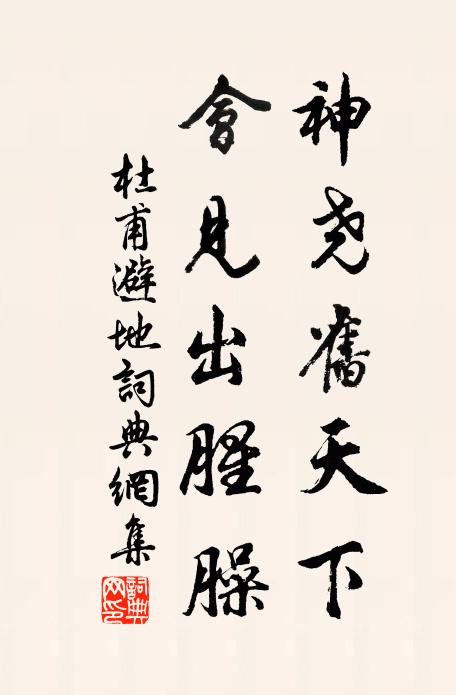 神尧舊天下
會見出腥臊
杜甫避地詞典網集
詞典網印